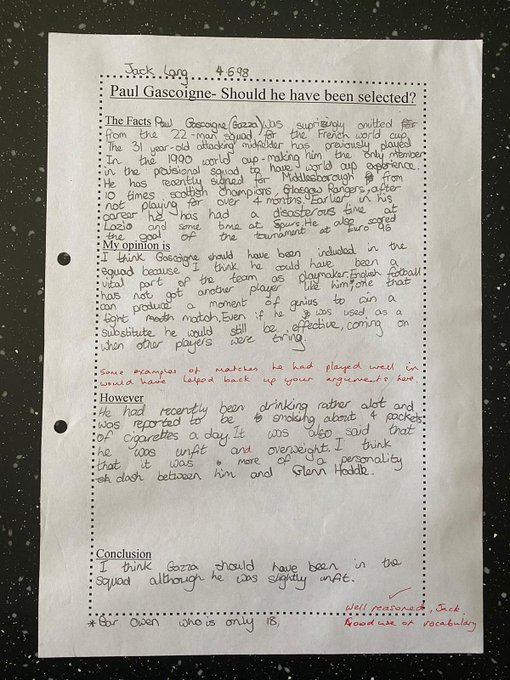 Jack Lang 4698
Paul Gascoigne- Should he have been selected?
The Facts Paul Gascoigne (Gazza) was suprisingly omitted
from the 22-man squad for the French world cup.
The 31 year-old attacking midfielder has previously played
In the 1990 world cup-making him the only member
in the provisional squad to have world cup experience.
He has recently signed for Middlesborough from
10 times scottish champions, Glasgow Rangers, after
not playing for over 4 months. Earlier in his
career he has had a disasterous time at
Lazio and some time at Spurs. He also scored
the goal of the tournament at Euro 96
My opinion is
I think Gascoigne should have been included in the
squad because I think he could have been a
vital part of the team as playmaker. English football
has not got another player like him*, one that
can produce a moment of genius to win a
tight match. Even if he was used as a
substitute he would still be effective, coming on
when other players were tiring.
Some examples of matches he had played well in
would have helped back up your arguments here
However
He had recently been drinking rather alot and
was reported to be smoking about 4 packets
of cigarettes a day. It was also said that
he was unfit and overweight. I think
that it was more of a personality
clash between him and Glenn Hoddle.
Conclusion
I think Gazza should have been in the
squad although he was slightly unfit.
*Bar Owen who is only 18.
Well reasoned, Jack.
Good use of vocabulary